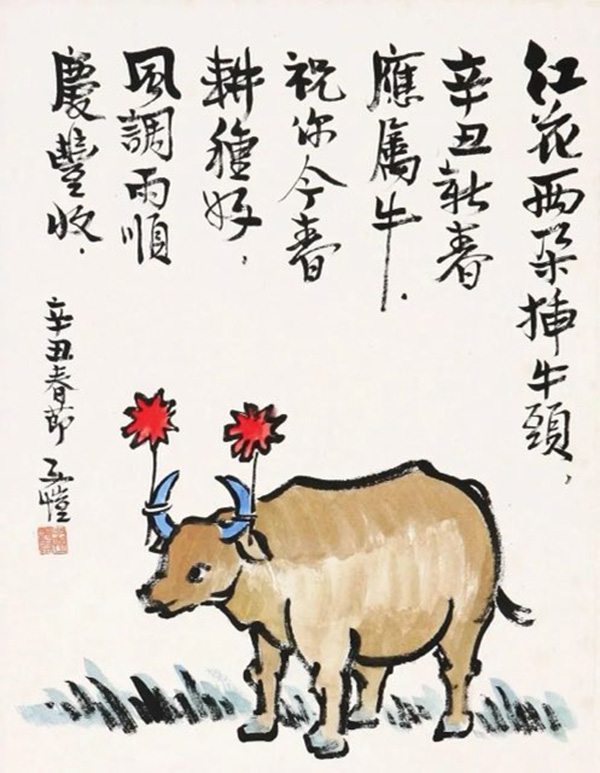 红花两朵插牛頭，
辛丑新春
應屬牛．
祝你今春
耕種好，
風調雨順
慶豐收．
辛丑春節 子愷